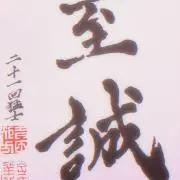 至誠
二十一回猛士